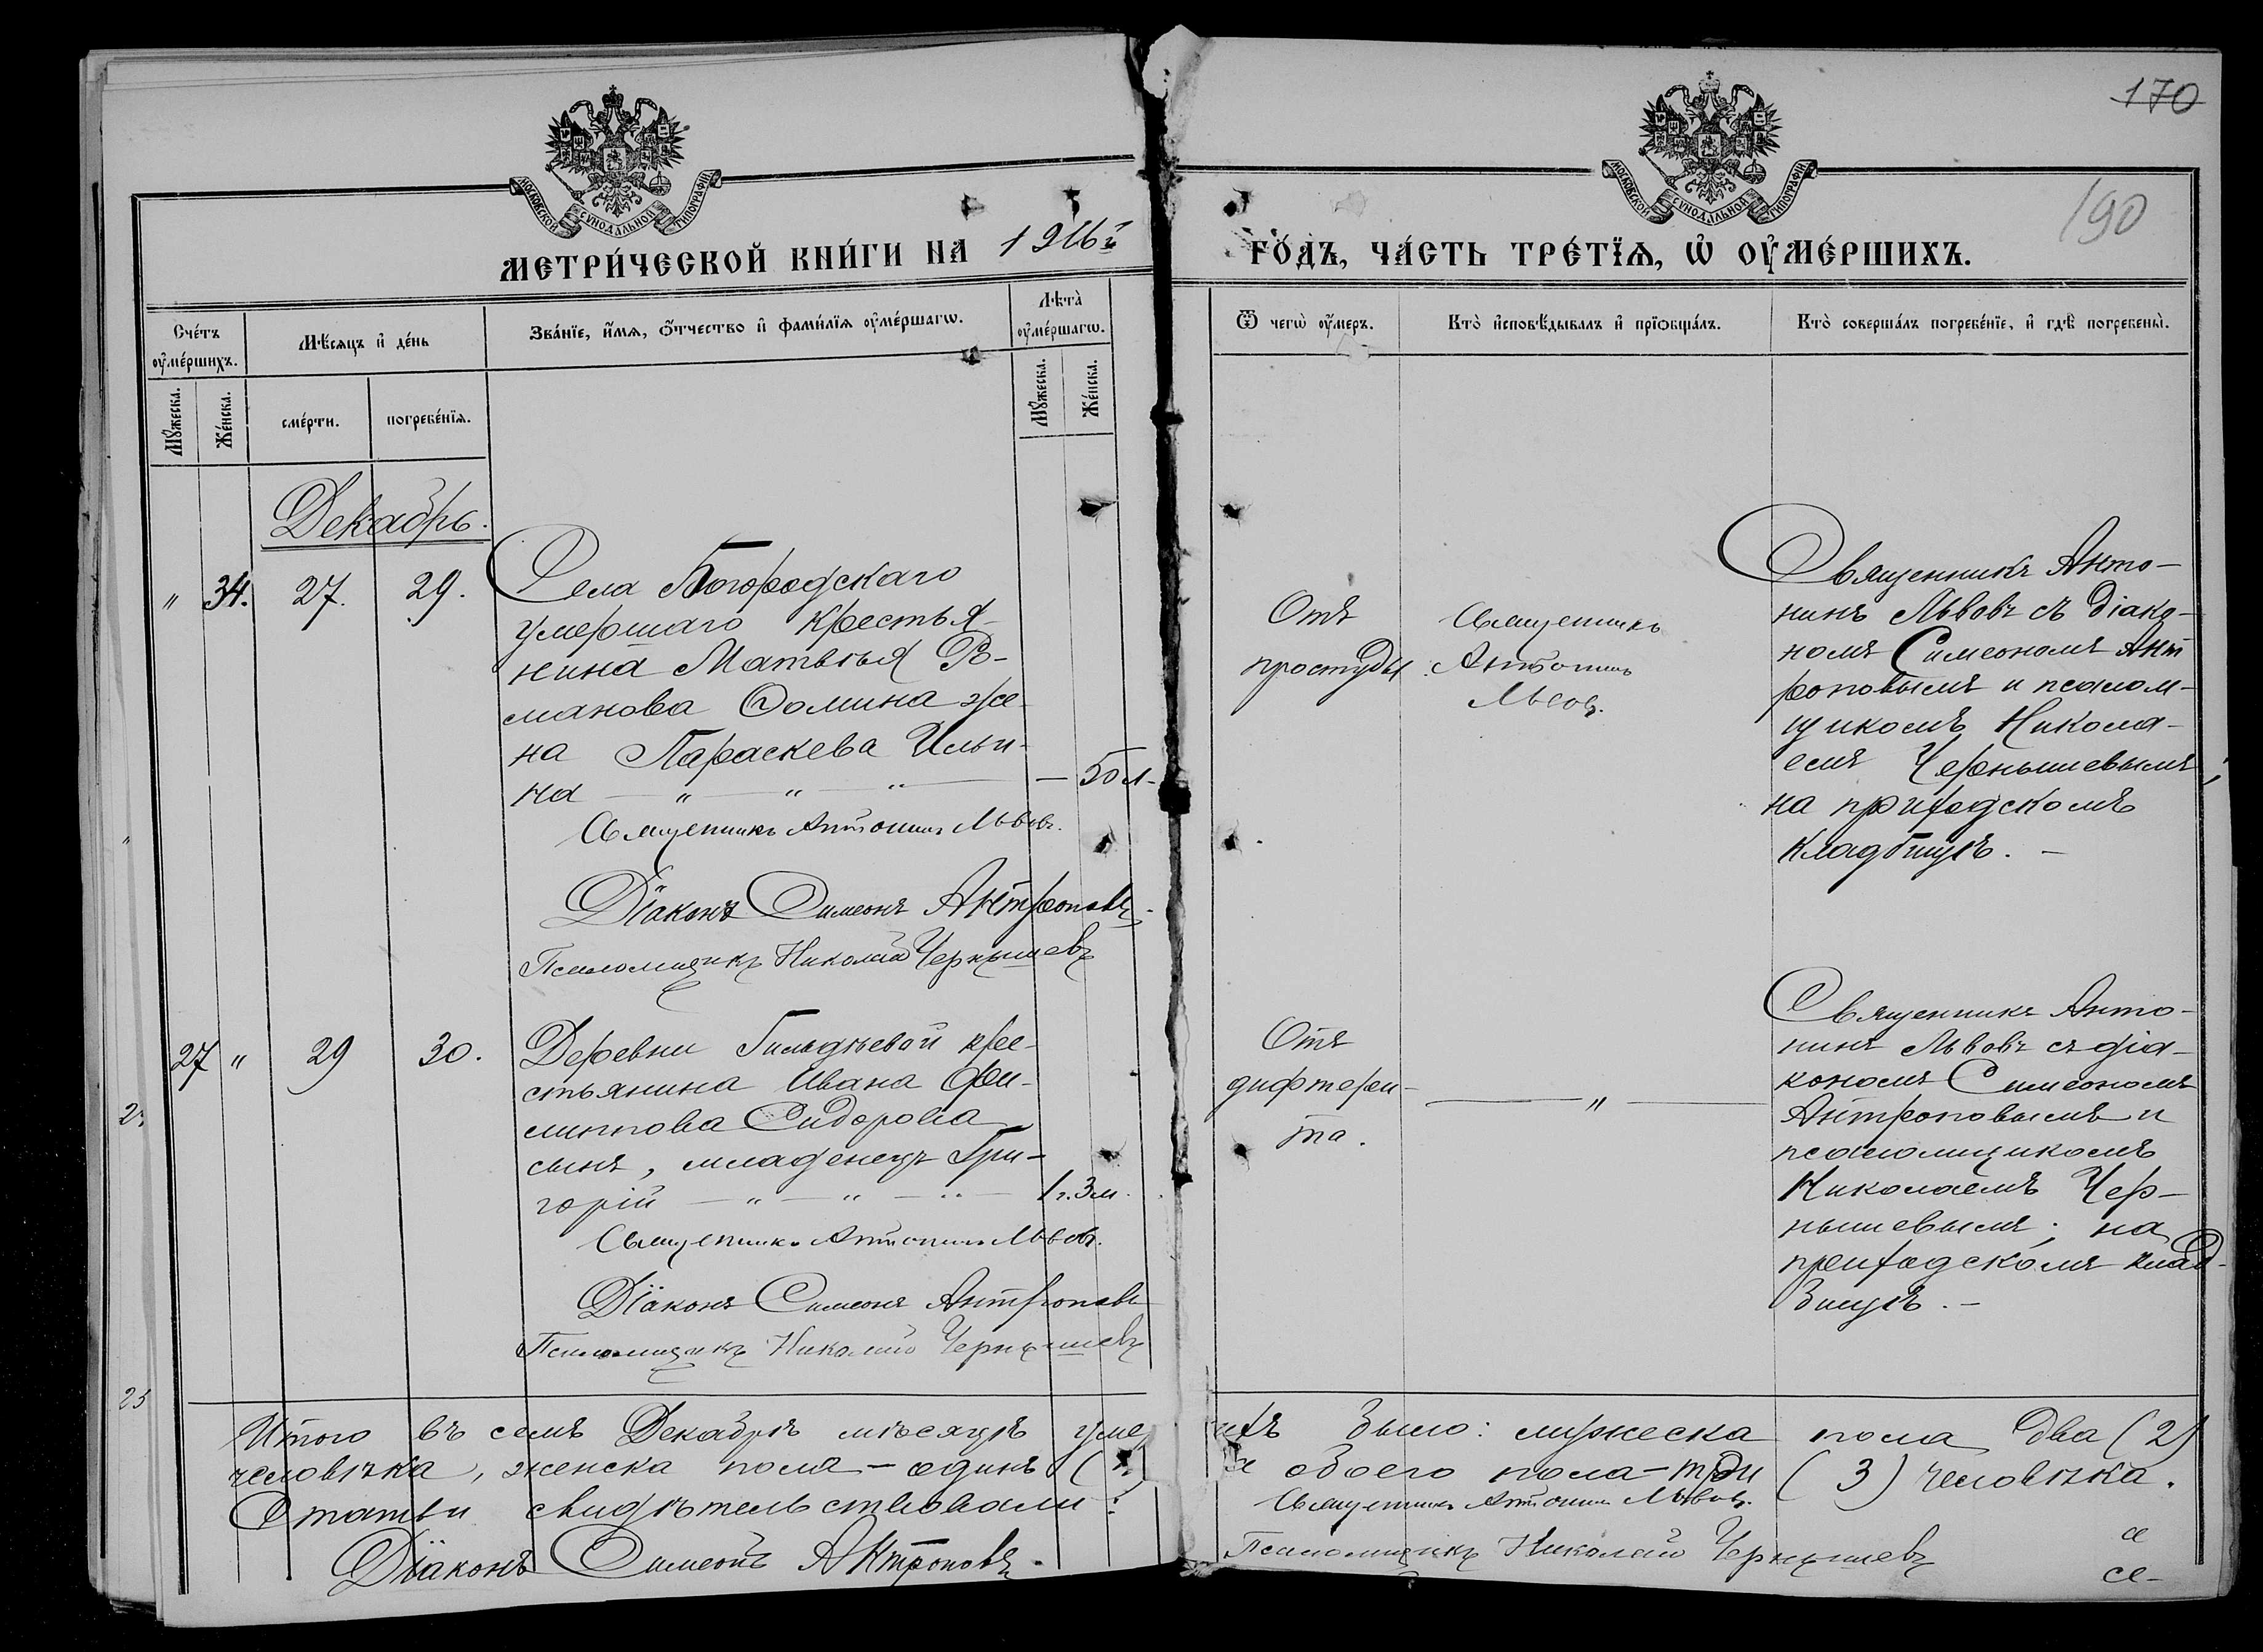 170
190
МОСКОВСКОЙ СѴНОДАЛЬНОЙ ТИПОГРАФІИ
МОСКОВСКОЙ СѴНОДАЛЬНОЙ ТИПОГРАФІИ
МЕТРИ́ЧЕСКОЙ КНИ́ГИ НА 1916й
ГО́ДЪ, ЧА́СТЬ ТРЕ́ТЇѦ, Ѡ҆ ОУ҆МЕ́РШИХЪ.
Сче́тъ оу҆ме́ршихъ.
Мѣ́сяцъ и҆ де́нь
Зва́нїе, и҆́мѧ, ѻ҆́тчество и҆ фами́лїѧ оу҆ме́ршагѡ.
Лѣ́та̀ оу҆ме́ршагѡ.
Ѿ чегѡ̀ оу҆́меръ.
Кто̀ и҆сповѣ́дывалъ и҆ прїѡбща́лъ.
Кто̀ соверша́лъ погребе́нїе, и҆ гдѣ̀ погребены̀.
Мꙋ́жеска.
Же́нска.
сме́рти.
погребе́нїѧ.
Мꙋ́жеска.
Же́нска.
Декабрь.
" 34. 27. 29.
Села Богородскаго
умершаго крестья-
нина Матвѣя Ро-
манова Ѳомина же-
на Параскева Ильи-
на — " — " — " — — 50 л-
Священникъ Антонинъ Львовъ.
Дїаконъ Симеонъ Антроповъ.
Псаломщикъ Николай Чернышевъ
Отъ
простуды.
Священникъ
Антонинъ
Львовъ.
Священникъ Анто-
нинъ Львовъ съ діако-
номъ Симеономъ Ант
роповымъ и псалом-
щикомъ Никола-
емъ Чернышевымъ;
на приходскомъ
кладбищѣ. —
27 " 29 30.
Деревни Гильдѣевой кре-
стьянина Ивана Фи-
липпова Сидорова
сынъ, младенецъ Гри-
горій — " — " — " — 1 г. 3 м.
Священникъ Антонинъ Львовъ.
Дїаконъ Симеонъ Антроповъ
Псаломщикъ Николай Чернышевъ
Отъ
дифтери-
та.
— " —
Священникъ Анто-
нинъ Львовъ съ діа-
кономъ Симеономъ
Антроповымъ и
псаломщикомъ
Николаемъ Чер-
нышевымъ; на
приходскомъ клад-
бищѣ. —
Итого въ семъ Декабрѣ мѣсяцѣ уме ихъ было: мужеска пола два (2)
человѣка, женска пола — одинъ ( а обоего пола — три (3) человѣка.
Статьи свидѣтельствовали:
Священникъ Антонинъ Львовъ.
Дїаконъ Симеонъ Антроповъ.
Псаломщикъ Николай Чернышевъ